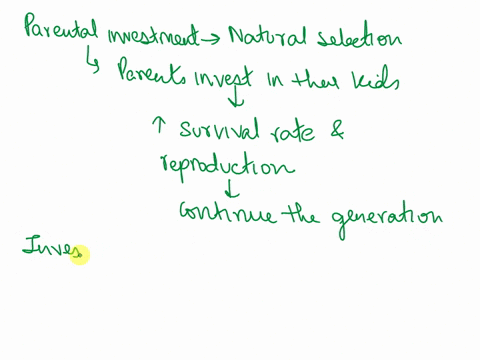 Parental investment → Natural selection
↳ Parents invest in their kids
↓
↑ survival rate &
reproduction
↓
continue the generation
Inves